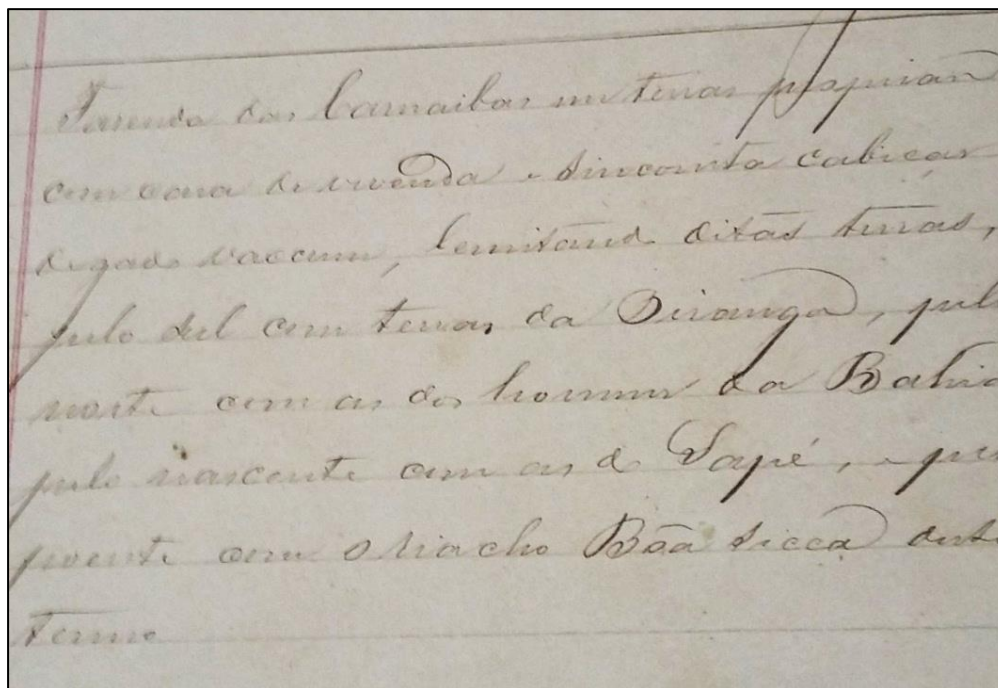 Fazenda das Carnaibas em terras proprias
com casa de vivenda e sincoenta cabeças
de gado vaccum, lemitando ditas terras,
pelo sul com terras da
norte com as dos homens da Bahia
pelo nascente com as do Sapé, e pelo
poente com o riacho Bôa Sicca deste
termo